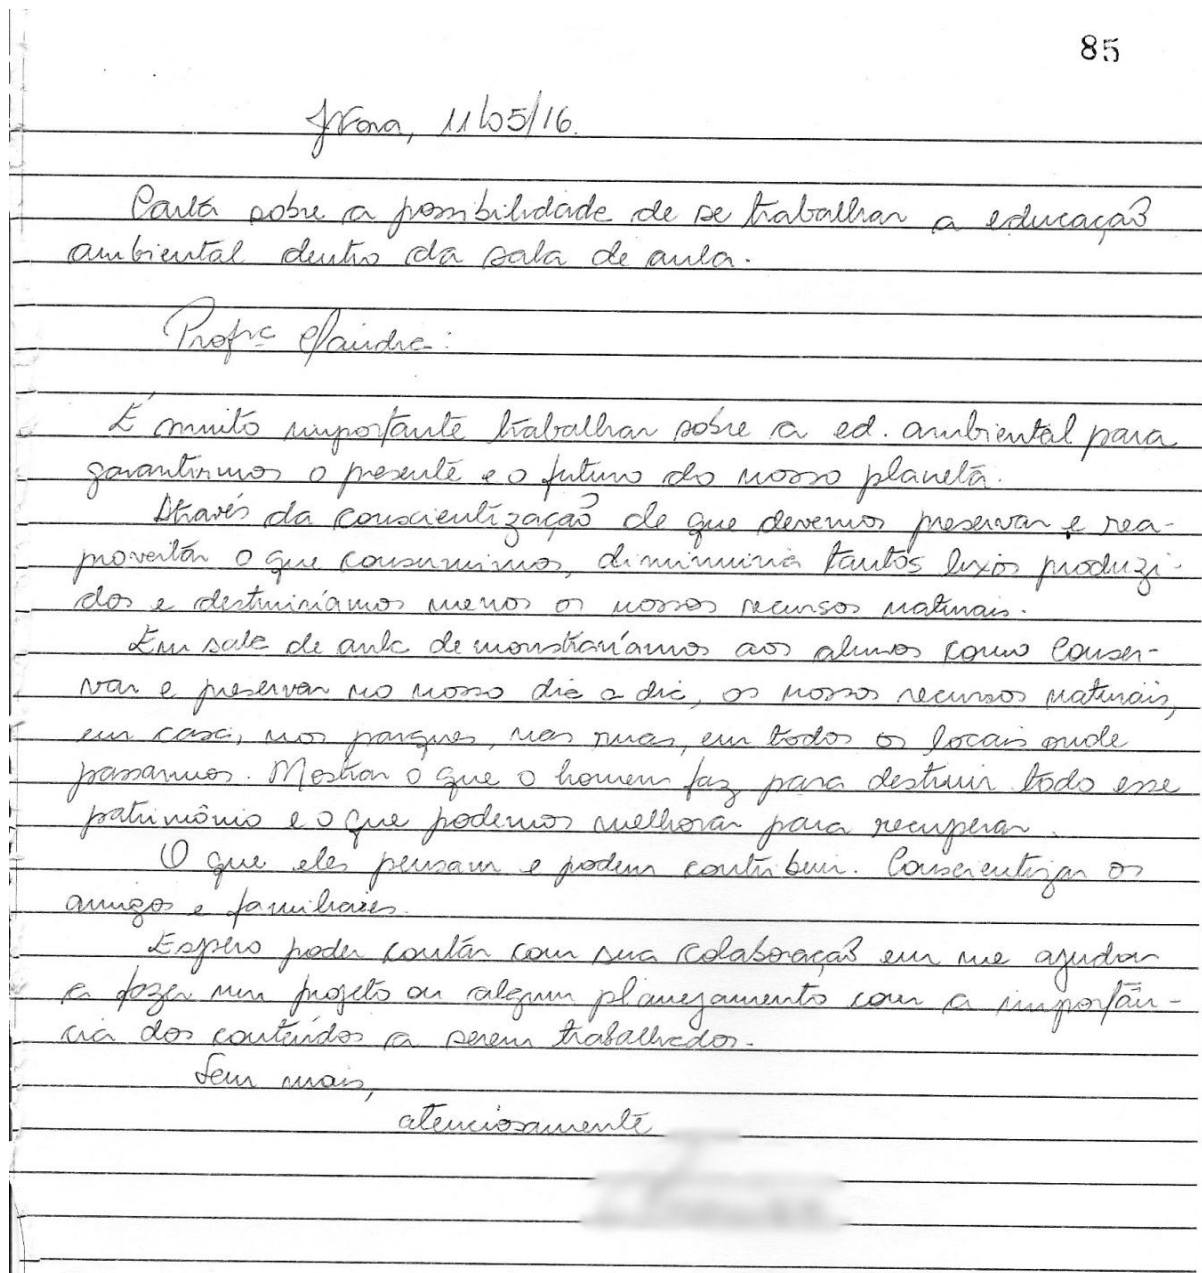 85
11/05/16.
Carta sobre a possibilidade de se trabalhar a educação
ambiental dentro da sala de aula.
Profª Claudia:
É muito importante trabalhar sobre a ed. ambiental para
garantirmos o presente e o futuro do nosso planeta.
Através da conscientização de que devemos preservar e rea-
proveitar o que consumimos, diminuiria tantos lixos produzi-
dos e destruiríamos menos os nossos recursos naturais.
Em sala de aula demonstraríamos aos alunos como conser-
var e preservar no nosso dia a dia, os nossos recursos naturais,
em casa, nos parques, nas ruas, em todos os locais onde
passarmos. Mostrar o que o homem faz para destruir todo esse
patrimônio e o que podemos melhorar para recuperar.
O que eles pensam e podem contribuir. Conscientizar os
amigos e familiares.
Espero poder contar com sua colaboração em me ajudar
a fazer um projeto ou algum planejamento com a importân-
cia dos conteúdos a serem trabalhados.
Sem mais,
atenciosamente